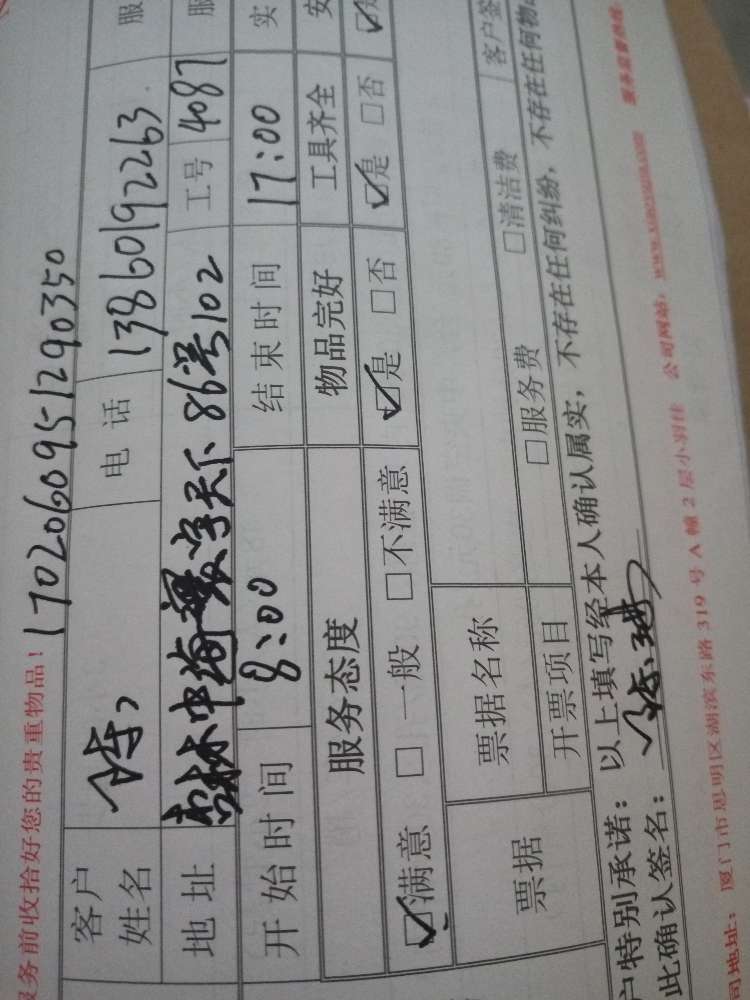 服务前收拾好您的贵重物品！1702060951290350
客户姓名 电话 13860192263 服
地址 杏林中海寰宇天下86号102 工号 4087 服
开始时间 8:00 结束时间 17:00 实
服务态度 物品完好 工具齐全 安
☑满意 □一般 □不满意 ☑是 □否 ☑是 □否 ☑是
票据 票据名称
开票项目 □服务费 □清洁费 客户签
户特别承诺：以上填写经本人确认属实，不存在任何纠纷，不存在任何物
此确认签名：
司地址：厦门市思明区湖滨东路319号A幢2层小羽佳 公司网站：www.xiaoyujia.com 服务监督热线：